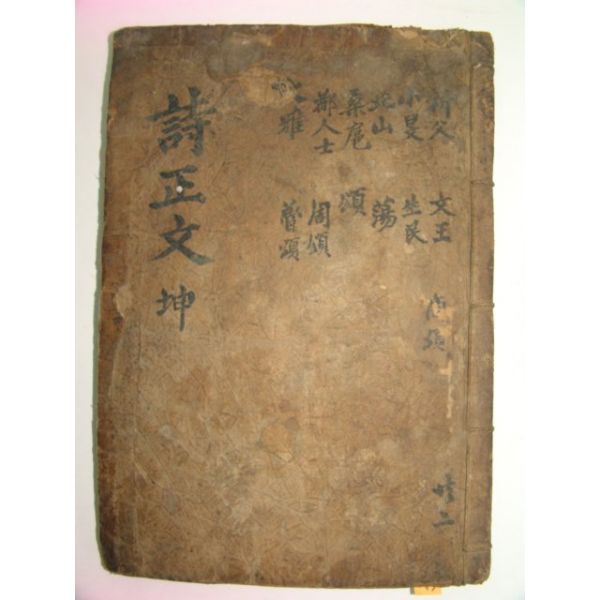 祈父 文王 商頌
小旻 生民
北山 蕩
桑扈 頌
都人士 周頌
大雅 魯頌
詩正文 坤